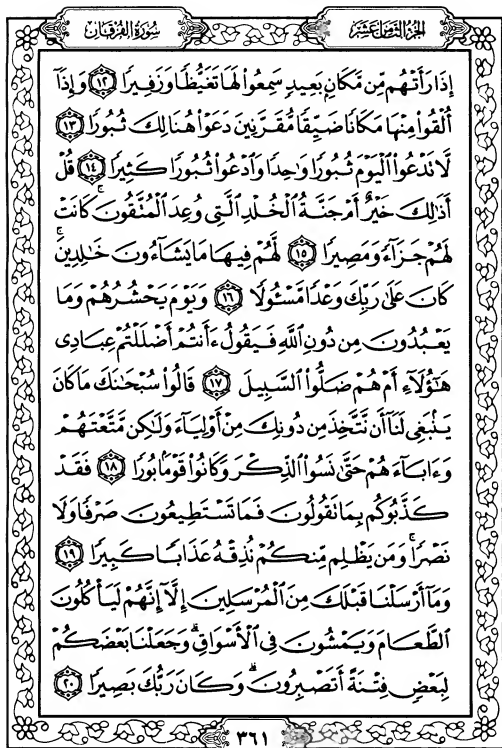 سُورَةُ الْفُرْقَانِ
الجُزْءُ الثَّامِنَ عَشَرَ
إِذَا رَأَتْهُم مِّن مَّكَانٍ بَعِيدٍ سَمِعُوا۟ لَهَا تَغَيُّظًا وَزَفِيرًا ﴿١٢﴾ وَإِذَآ
أُلْقُوا۟ مِنْهَا مَكَانًا ضَيِّقًا مُّقَرَّنِينَ دَعَوْا۟ هُنَالِكَ ثُبُورًا ﴿١٣﴾
لَّا تَدْعُوا۟ الْيَوْمَ ثُبُورًا وَٰحِدًا وَادْعُوا۟ ثُبُورًا كَثِيرًا ﴿١٤﴾ قُلْ
أَذَٰلِكَ خَيْرٌ أَمْ جَنَّةُ الْخُلْدِ الَّتِى وُعِدَ الْمُتَّقُونَ ۚ كَانَتْ
لَهُمْ جَزَآءً وَمَصِيرًا ﴿١٥﴾ لَّهُمْ فِيهَا مَا يَشَآءُونَ خَٰلِدِينَ ۚ
كَانَ عَلَىٰ رَبِّكَ وَعْدًا مَّسْـُٔولًا ﴿١٦﴾ وَيَوْمَ يَحْشُرُهُمْ وَمَا
يَعْبُدُونَ مِن دُونِ اللَّهِ فَيَقُولُ ءَأَنتُمْ أَضْلَلْتُمْ عِبَادِى
هَٰٓؤُلَآءِ أَمْ هُمْ ضَلُّوا۟ السَّبِيلَ ﴿١٧﴾ قَالُوا۟ سُبْحَٰنَكَ مَا كَانَ
يَنۢبَغِى لَنَآ أَن نَّتَّخِذَ مِن دُونِكَ مِنْ أَوْلِيَآءَ وَلَٰكِن مَّتَّعْتَهُمْ
وَءَابَآءَهُمْ حَتَّىٰ نَسُوا۟ الذِّكْرَ وَكَانُوا۟ قَوْمًۢا بُورًا ﴿١٨﴾ فَقَدْ
كَذَّبُوكُم بِمَا تَقُولُونَ فَمَا تَسْتَطِيعُونَ صَرْفًا وَلَا
نَصْرًا ۚ وَمَن يَظْلِم مِّنكُمْ نُذِقْهُ عَذَابًا كَبِيرًا ﴿١٩﴾
وَمَآ أَرْسَلْنَا قَبْلَكَ مِنَ الْمُرْسَلِينَ إِلَّآ إِنَّهُمْ لَيَأْكُلُونَ
الطَّعَامَ وَيَمْشُونَ فِى الْأَسْوَاقِ ۗ وَجَعَلْنَا بَعْضَكُمْ
لِبَعْضٍ فِتْنَةً أَتَصْبِرُونَ ۗ وَكَانَ رَبُّكَ بَصِيرًا ﴿٢٠﴾
٣٦١